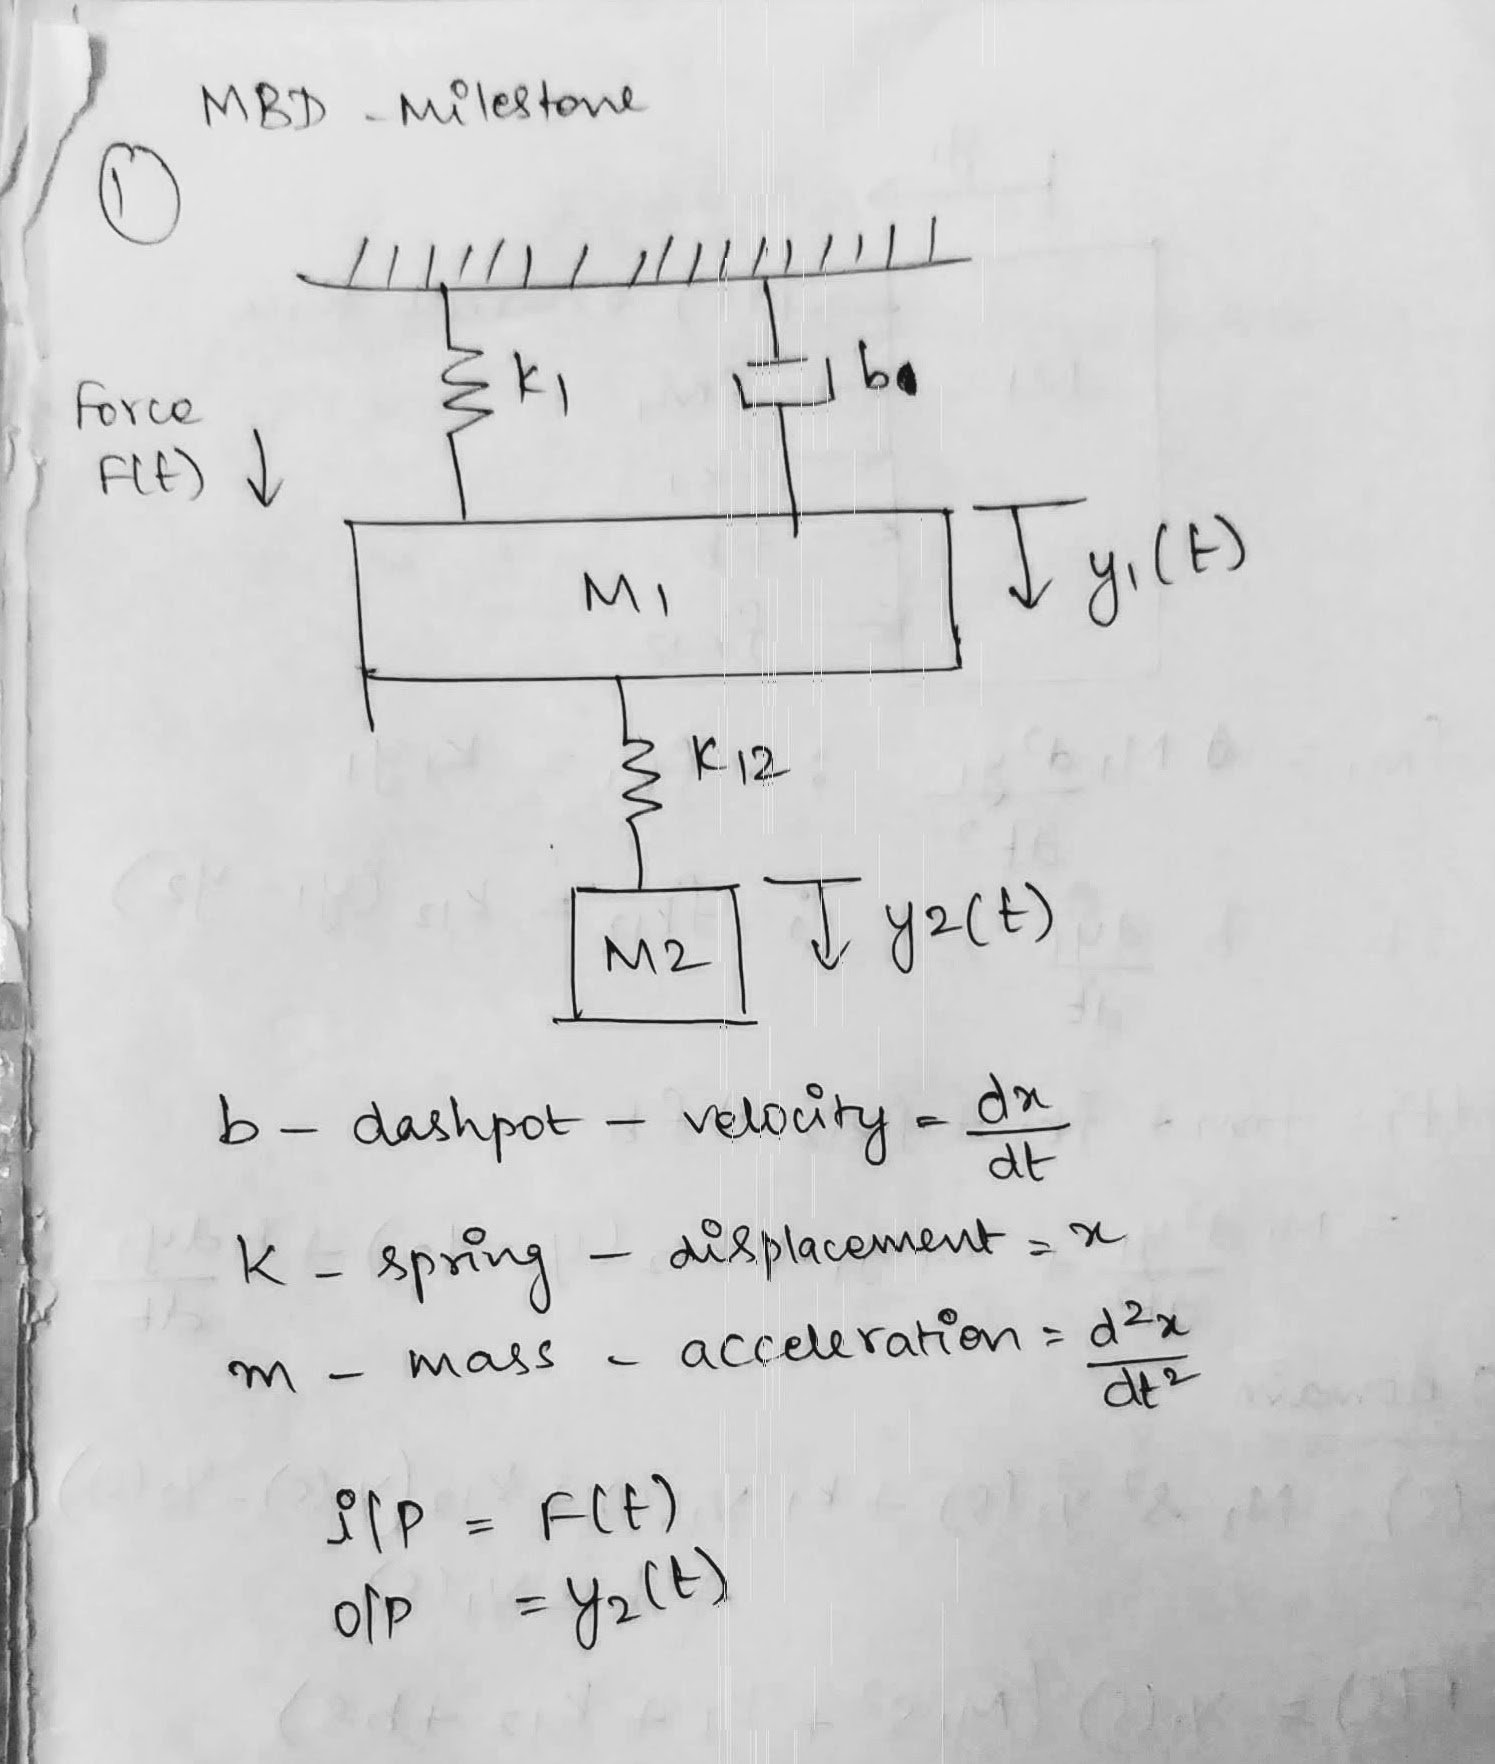 MBD - Milestone
1
K1
b
Force
F(t)
M1
y1(t)
K12
M2
y2(t)
b - dashpot - velocity = dx/dt
K - spring - displacement = x
m - mass - acceleration = d²x/dt²
i/p = F(t)
o/p = y₂(t)